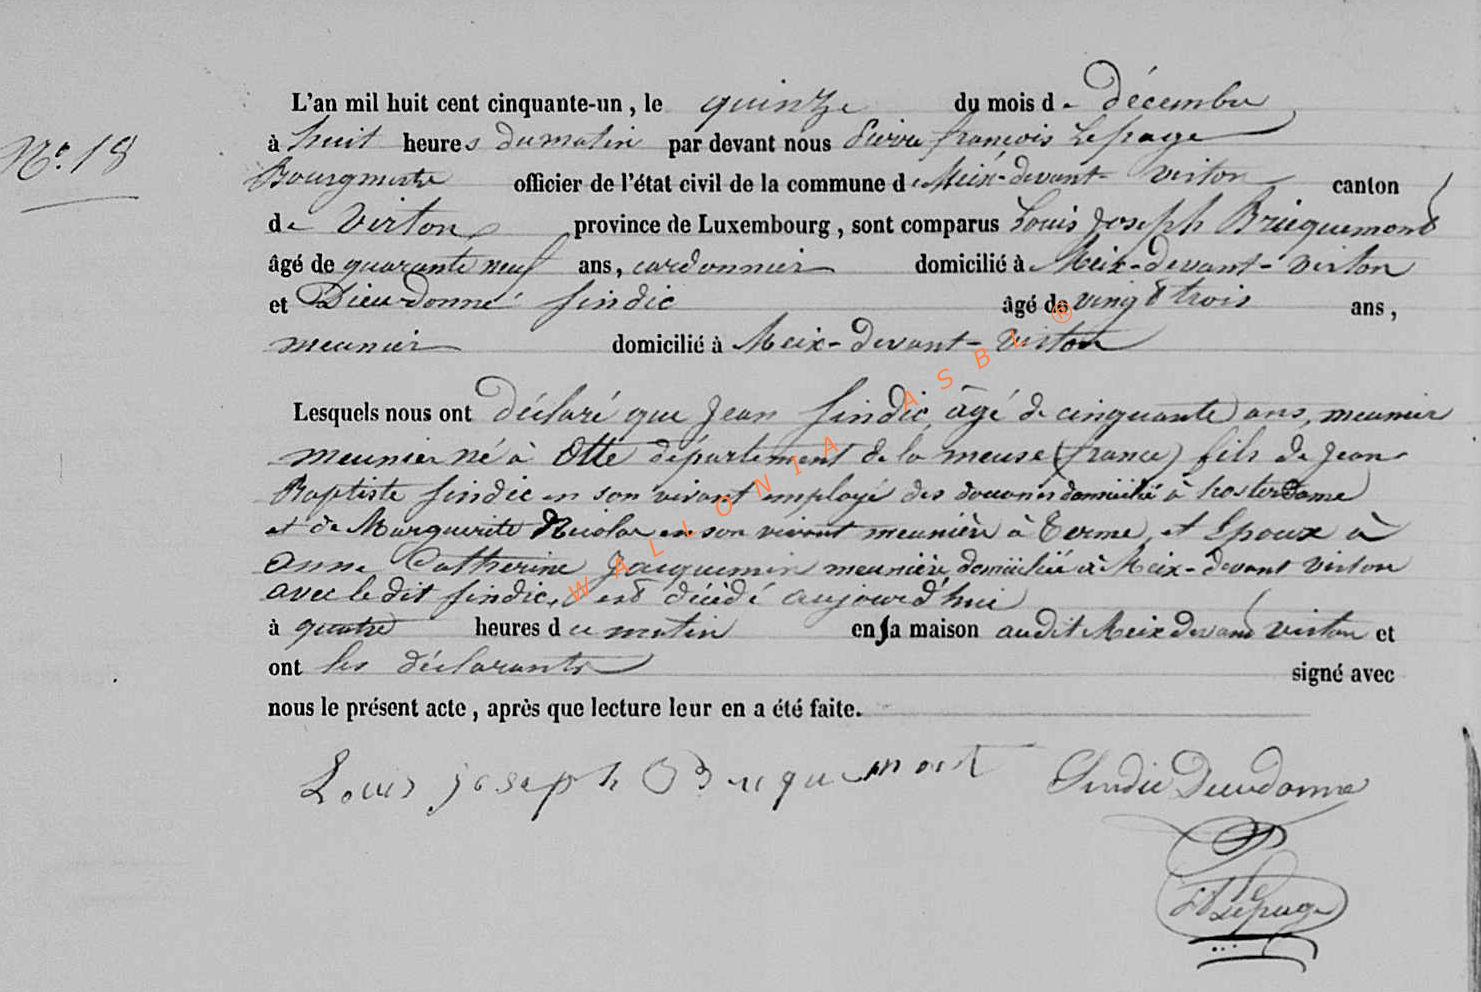 N.º 18
L'an mil huit cent cinquante-un, le quinze du mois de décembre
à huit heures du matin par devant nous Pierre françois Lepage
Bourgmestre officier de l'état civil de la commune de Meix-devant-virton canton
de Virton province de Luxembourg, sont comparus Louis Joseph Bricquemont
âgé de quarante neuf ans, cordonnier domicilié à Meix-devant-virton
et Dieudonné Sindic âgé de vingt trois ans,
meunier domicilié à Meix-devant-virton
Lesquels nous ont déclaré que Jean Sindic, âgé de cinquante ans, meunier
meunier né à Otte département de la meuse (france) fils de Jean
Baptiste Sindic en son vivant employé des douanes domicilié à
et de Marguerite Nicolas en son vivant meunière à Terme, et Epoux à
anne Catherine Jacquemin meunière domiciliée à Meix-devant virton
avec le dit Sindic, est décédé aujourd'hui
à quatre heures du matin en sa maison audit Meix devant virton et
ont les déclarants signé avec
nous le présent acte, après que lecture leur en a été faite.
Louis joseph Bricquemont
Sindic Dieudonné
Lepage
WALLONIA ASBL ®